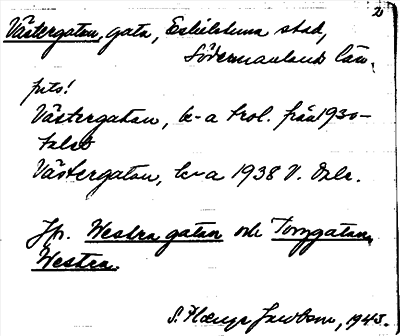 2
Västergatan, gata, Eskilstuna stad,
Södermanlands län.
Västergatan, k-a trol. från 1930-
talet
Västergatan, k-a 1938 V.
Jfr. Westra gatan och Torggatan,
Westra.
S. 1943.